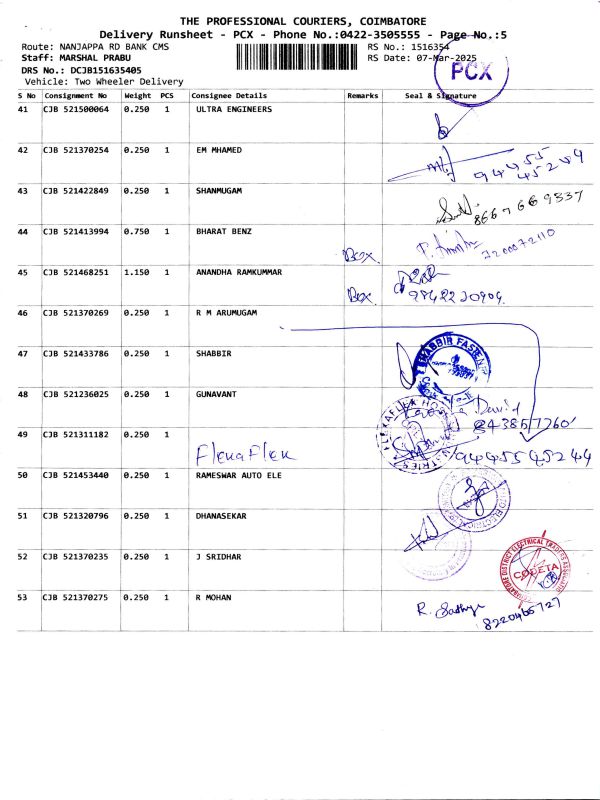 THE PROFESSIONAL COURIERS, COIMBATORE
Delivery Runsheet - PCX - Phone No.:0422-3505555 - Page No.:5
Route: NANJAPPA RD BANK CMS RS No.: 1516354
Staff: MARSHAL PRABU RS Date: 07-Mar-2025
PCX
DRS No.: DCJB151635405
Vehicle: Two Wheeler Delivery
S No Consignment No Weight PCS Consignee Details Remarks Seal & Signature
41 CJB 521500064 0.250 1 ULTRA ENGINEERS
42 CJB 521370254 0.250 1 EM MHAMED
94455
45244
43 CJB 521422849 0.250 1 SHANMUGAM
8667669337
44 CJB 521413994 0.750 1 BHARAT BENZ
Box 7200072110
45 CJB 521468251 1.150 1 ANANDHA RAMKUMMAR
Box 9842220909
46 CJB 521370269 0.250 1 R M ARUMUGAM
47 CJB 521433786 0.250 1 SHABBIR
SHABBIR
48 CJB 521236025 0.250 1 GUNAVANT
David
49 CJB 521311182 0.250 1
FlexaFlex 9445545244
50 CJB 521453440 0.250 1 RAMESWAR AUTO ELE
51 CJB 521320796 0.250 1 DHANASEKAR
52 CJB 521370235 0.250 1 J SRIDHAR
COIMBATORE DISTRICT ELECTRICAL TRADERS ASSOCIATION
CODETA
53 CJB 521370275 0.250 1 R MOHAN
R. Sathya